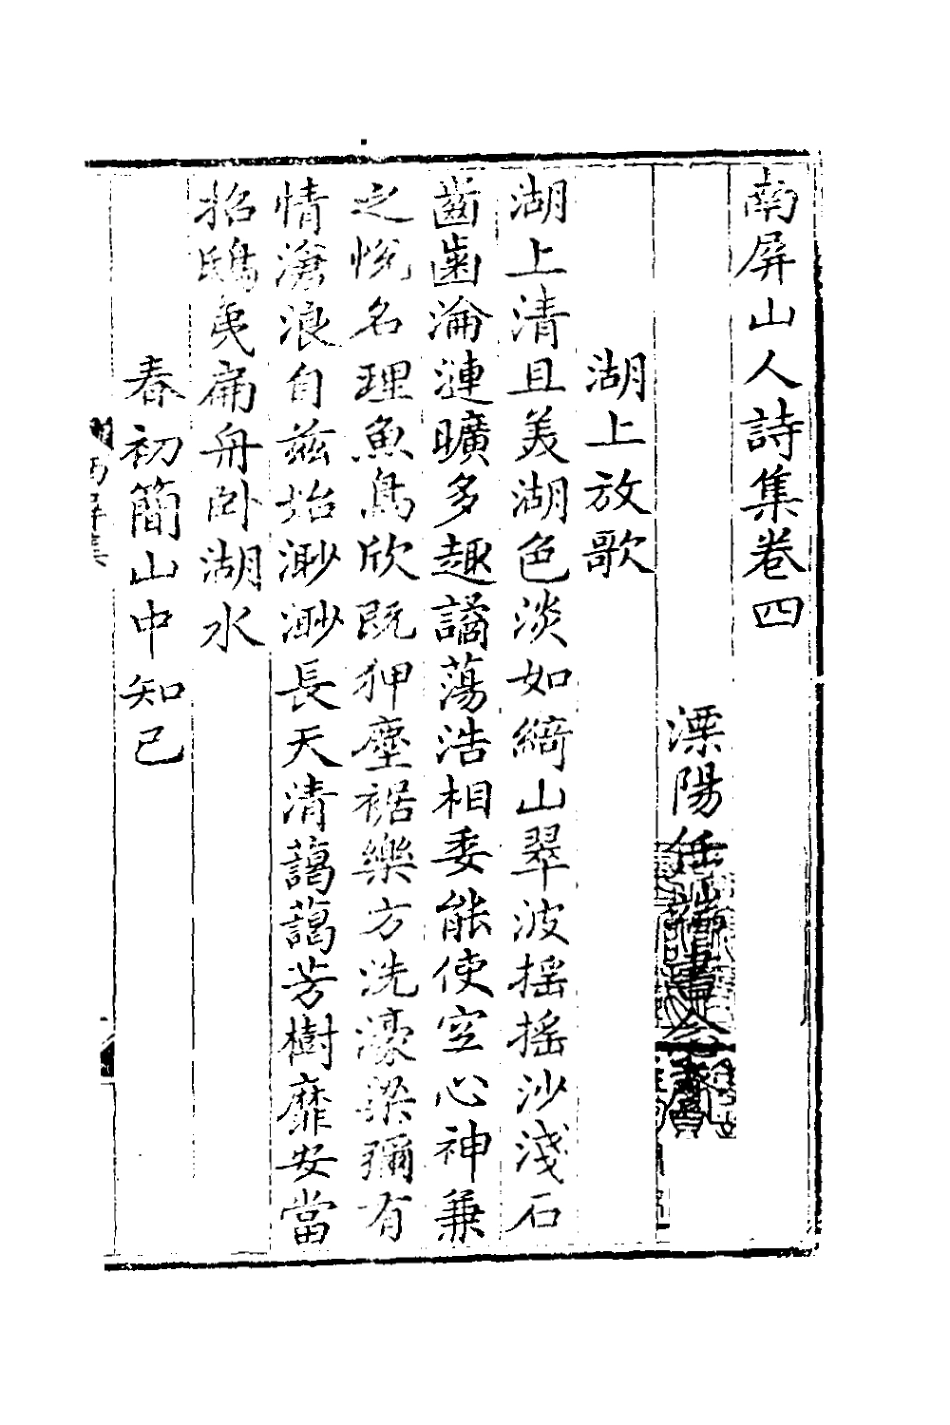 南屏山人詩集卷四
溧陽任端書念齋
湖上放歌
湖上清且美湖色淡如綺山翠波搖搖沙淺石
齒齒淪漣曠多趣譎蕩浩相委能使空心神兼
之悅名理魚鳥欣既狎塵裾樂方洗濠梁彌有
情滄浪自茲始渺渺長天清藹藹芳樹靡安當
招鴟夷扁舟卧湖水
春初簡山中知己